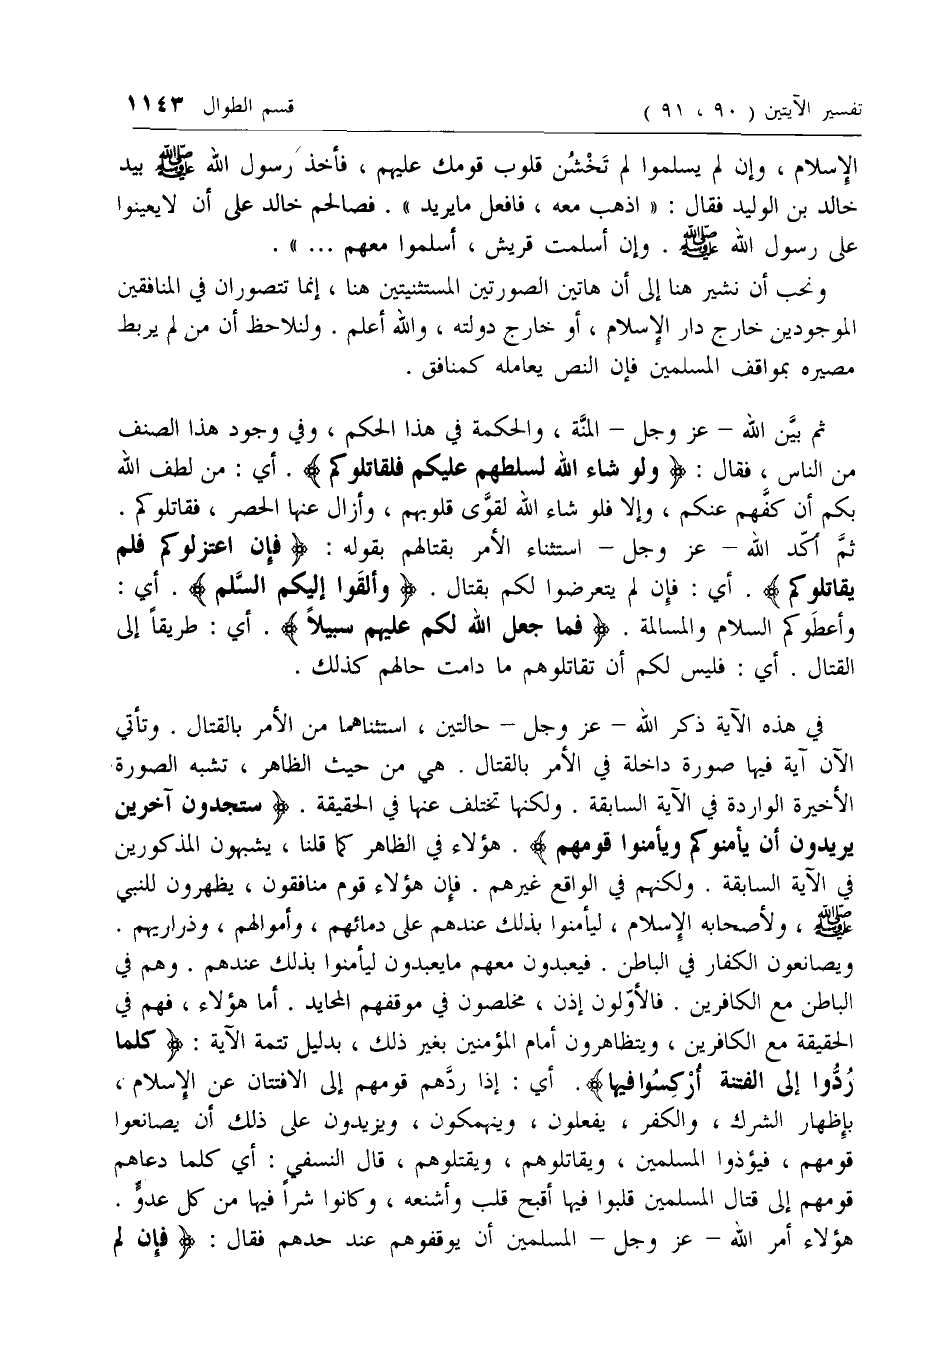 تفسير الآيتين ( ٩٠ ، ٩١ ) قسم الطوال ١١٤٣
الإِسلام ، وإن لم يسلموا لم تَخْشُن قلوب قومك عليهم ، فأخذ رسول الله ﷺ بيد
خالد بن الوليد فقال : « اذهب معه ، فافعل مايريد » . فصالحهم خالد على أن لايعينوا
على رسول الله ﷺ . وإن أسلمت قريش ، أسلموا معهم ... » .
ونحب أن نشير هنا إلى أن هاتين الصورتين المستثنيتين هنا ، إنما تتصوران في المنافقين
الموجودين خارج دار الإِسلام ، أو خارج دولته ، والله أعلم . ولنلاحظ أن من لم يربط
مصيره بمواقف المسلمين فإن النص يعامله كمنافق .
ثم بيَّن الله – عز وجل – المنَّة ، والحكمة في هذا الحكم ، وفي وجود هذا الصنف
من الناس ، فقال : ﴿ ولو شاء الله لسلطهم عليكم فلقاتلوكم ﴾ . أي : من لطف الله
بكم أن كفَّهم عنكم ، وإلا فلو شاء الله لقوَّى قلوبهم ، وأزال عنها الحصر ، فقاتلوكم .
ثمَّ أكّد الله – عز وجل – استثناء الأمر بقتالهم بقوله : ﴿ فإن اعتزلوكم فلم
يقاتلوكم ﴾ . أي : فإن لم يتعرضوا لكم بقتال . ﴿ وألقَوا إليكم السَّلم ﴾ . أي :
وأعطَوكم السلام والمسالمة . ﴿ فما جعل الله لكم عليهم سبيلاً ﴾ . أي : طريقاً إلى
القتال . أي : فليس لكم أن تقاتلوهم ما دامت حالهم كذلك .
في هذه الآية ذكر الله – عز وجل – حالتين ، استثناهما من الأمر بالقتال . وتأتي
الآن آية فيها صورة داخلة في الأمر بالقتال . هي من حيث الظاهر ، تشبه الصورة
الأخيرة الواردة في الآية السابقة . ولكنها تختلف عنها في الحقيقة . ﴿ ستجدون آخرين
يريدون أن يأمنوكم ويأمنوا قومهم ﴾ . هؤلاء في الظاهر كما قلنا ، يشبهون المذكورين
في الآية السابقة . ولكنهم في الواقع غيرهم . فإن هؤلاء قوم منافقون ، يظهرون للنبي
ﷺ ، ولأصحابه الإِسلام ، ليأمنوا بذلك عندهم على دمائهم ، وأموالهم ، وذراريهم .
ويصانعون الكفار في الباطن . فيعبدون معهم مايعبدون ليأمنوا بذلك عندهم . وهم في
الباطن مع الكافرين . فالأوّلون إذن ، مخلصون في موقفهم المحايد . أما هؤلاء ، فهم في
الحقيقة مع الكافرين ، ويتظاهرون أمام المؤمنين بغير ذلك ، بدليل تتمة الآية : ﴿ كلما
رُدُّوا إلى الفتنة أُرْكِسُوا فيها ﴾ . أي : إذا ردَّهم قومهم إلى الافتتان عن الإِسلام ،
بإِظهار الشرك ، والكفر ، يفعلون ، وينهمكون ، ويزيدون على ذلك أن يصانعوا
قومهم ، فيؤذوا المسلمين ، ويقاتلوهم ، ويقتلوهم ، قال النسفي : أي كلما دعاهم
قومهم إلى قتال المسلمين قلبوا فيها أقبح قلب وأشنعه ، وكانوا شراً فيها من كل عدوٍّ .
هؤلاء أمر الله – عز وجل – المسلمين أن يوقفوهم عند حدهم فقال : ﴿ فإن لم